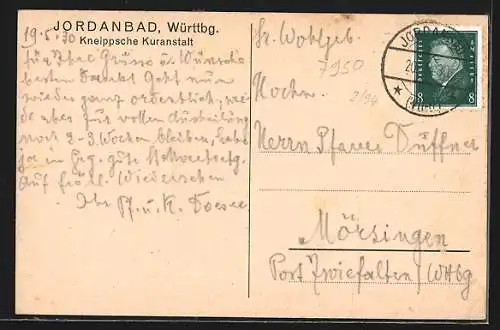 JORDANBAD, Württbg.
Kneippsche Kuranstalt
19.5.30
für Ihre Grüsse u. Wünsche
besten Dank! Geht nun
wieder ganz ordentlich, we
de aber zur vollen Ausheilung
noch 2-3 Wochen bleiben, habe
ja in Geg. gute
Auf fröhl. Wiedersehen
Ihr Pf. u. K.
Sr. Wohlgeb.
7950
2/94
Hochw.
Herrn Pfarrer Duffner
Mörsingen
Post Zwiefalten (Wttbg
JORDANBAD
DEUTSCHES REICH
8 8